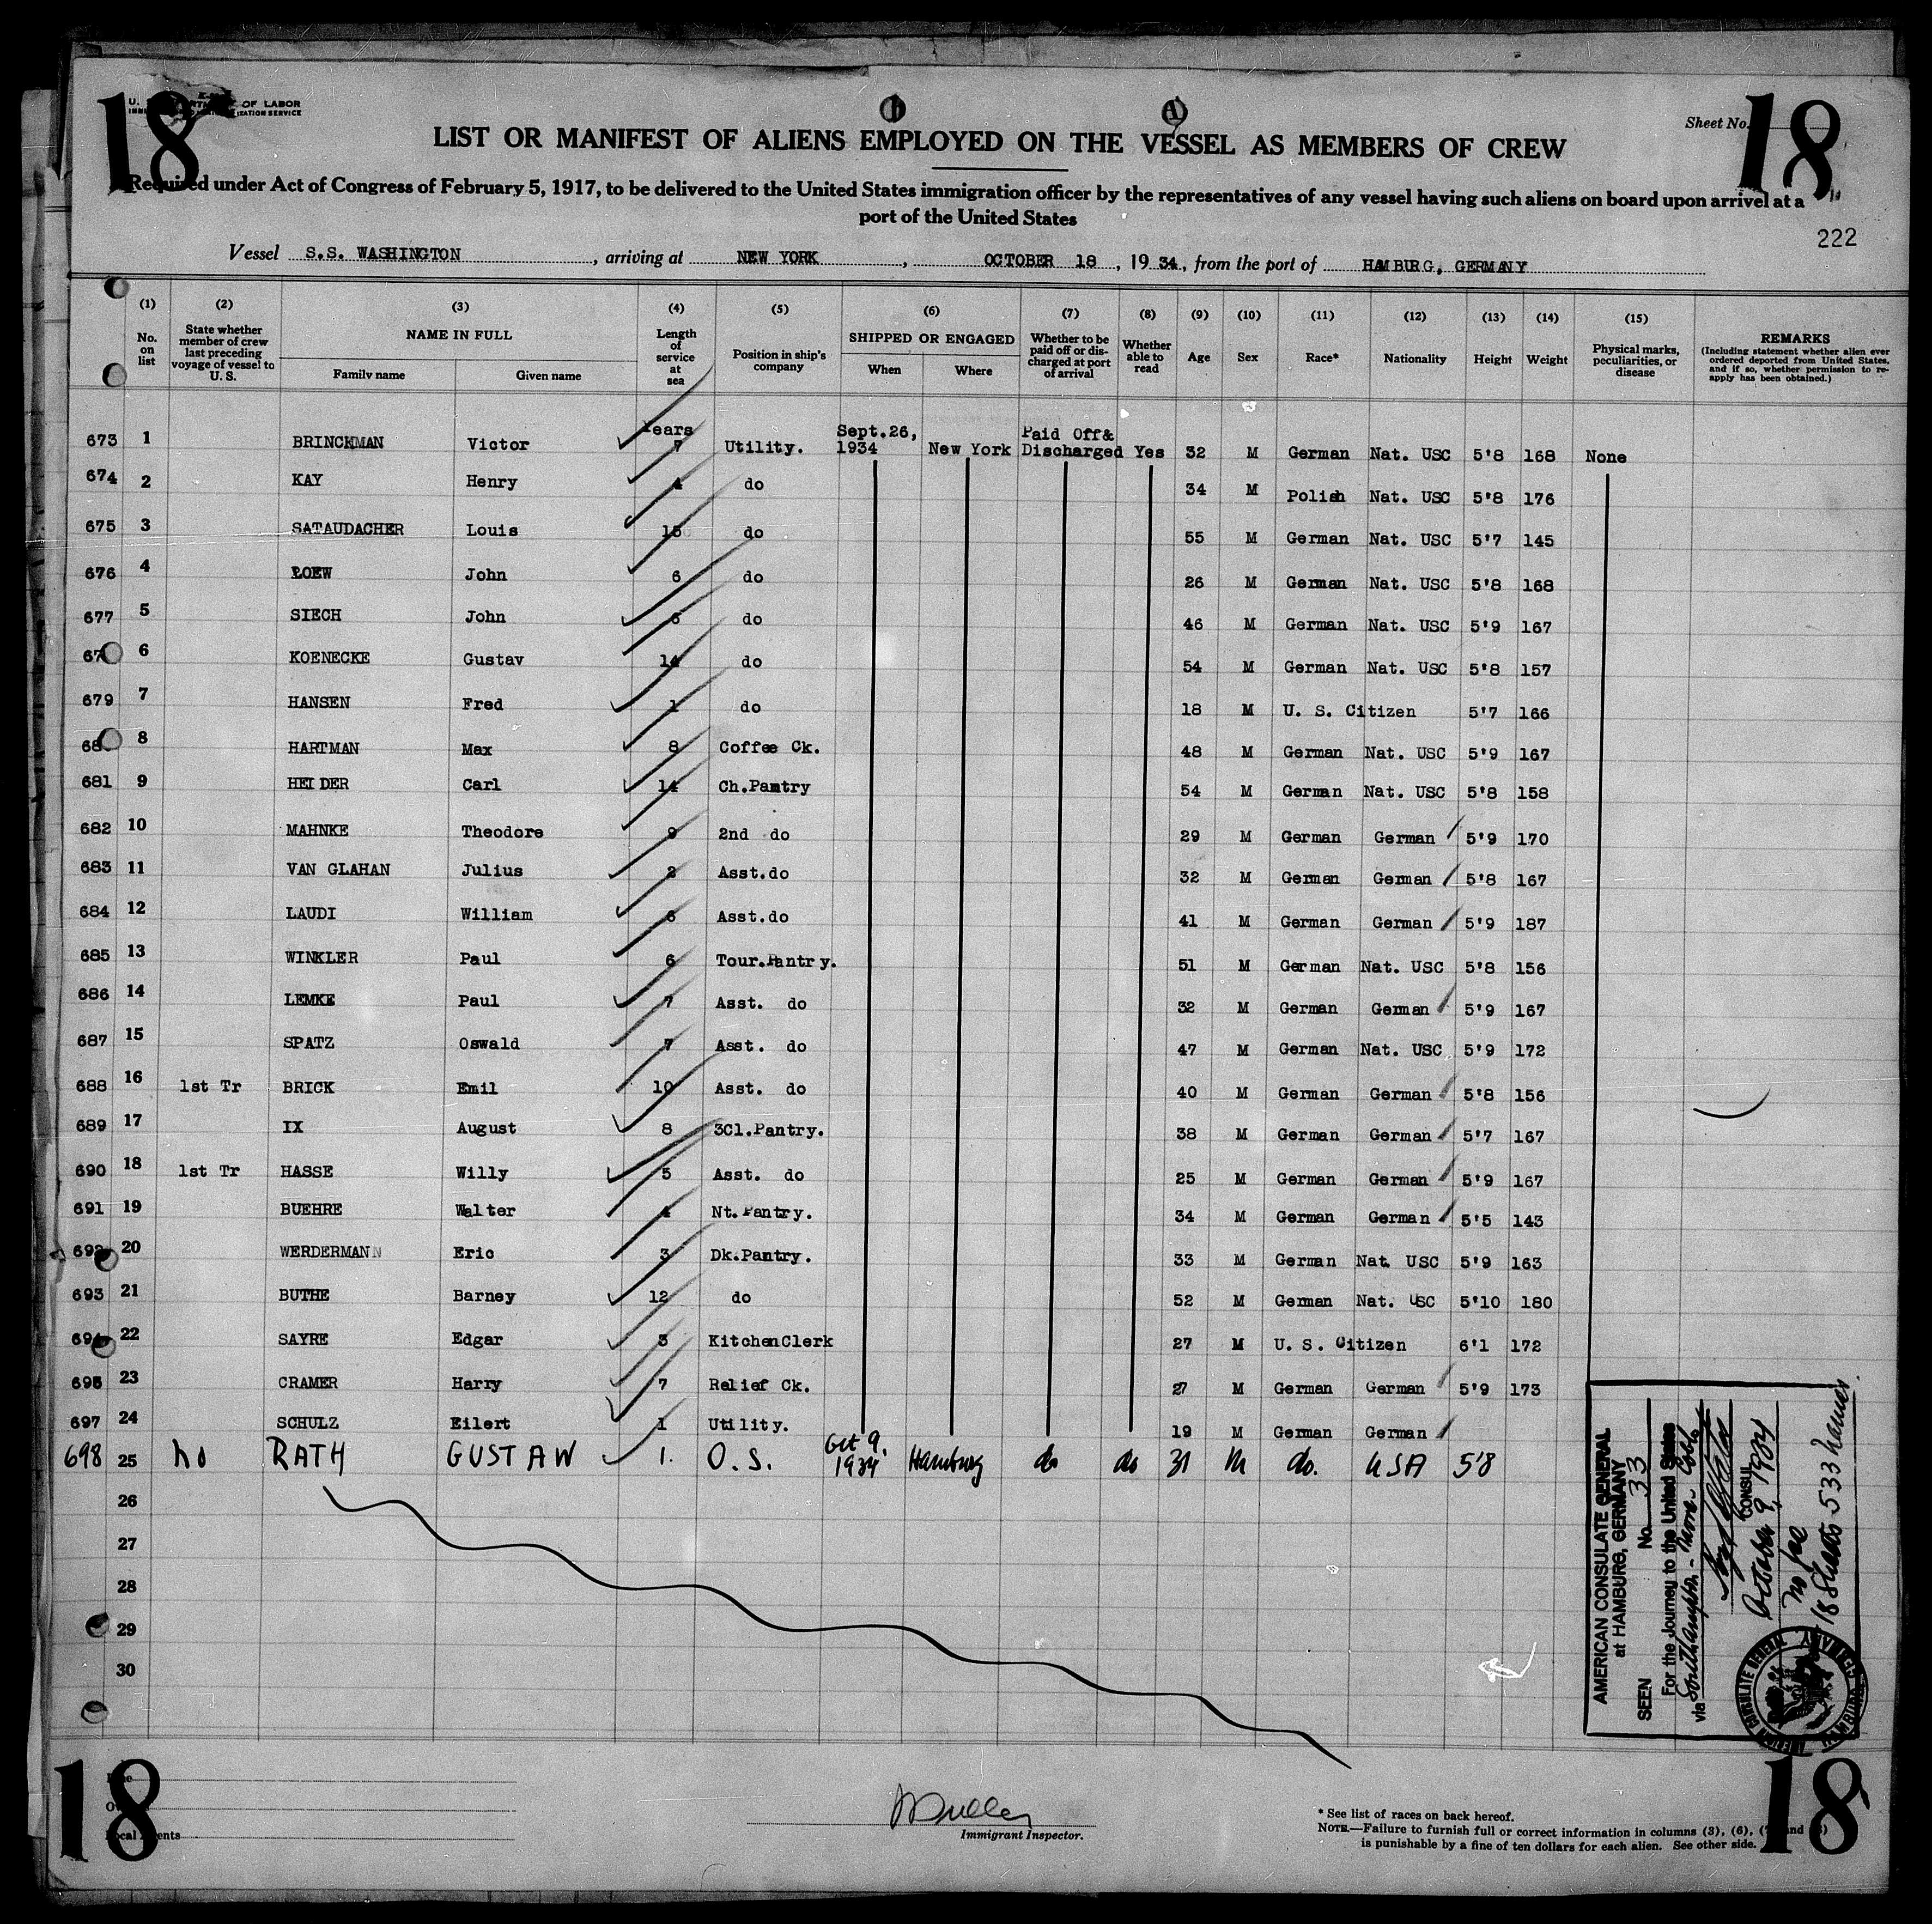 18
18
U. S. DEPARTMENT OF LABOR
IMMIGRATION AND NATURALIZATION SERVICE
Sheet No.
LIST OR MANIFEST OF ALIENS EMPLOYED ON THE VESSEL AS MEMBERS OF CREW
Required under Act of Congress of February 5, 1917, to be delivered to the United States immigration officer by the representatives of any vessel having such aliens on board upon arrival at a
port of the United States
222
Vessel S.S. WASHINGTON, arriving at NEW YORK, OCTOBER 18, 1934, from the port of HAMBURG, GERMANY
(1) (2) (3) (4) (5) (6) (7) (8) (9) (10) (11) (12) (13) (14) (15)
No. on list
State whether member of crew last preceding voyage of vessel to U. S.
NAME IN FULL
Family name
Given name
Length of service at sea
Position in ship's company
SHIPPED OR ENGAGED
When
Where
Whether to be paid off or discharged at port of arrival
Whether able to read
Age
Sex
Race*
Nationality
Height
Weight
Physical marks, peculiarities, or disease
REMARKS
(Including statement whether alien ever ordered deported from United States, and if so, whether permission to reapply has been obtained.)
673 1 BRINCKMAN Victor Years 7 Utility. Sept.26, 1934 New York Paid Off& Discharged Yes 32 M German Nat. USC 5'8 168 None
674 2 KAY Henry 4 do 34 M Polish Nat. USC 5'8 176
675 3 SATAUDACHER Louis 15 do 55 M German Nat. USC 5'7 145
676 4 LOEW John 6 do 26 M German Nat. USC 5'8 168
677 5 SIECH John 6 do 46 M German Nat. USC 5'9 167
67 6 KOENECKE Gustav 14 do 54 M German Nat. USC 5'8 157
679 7 HANSEN Fred 1 do 18 M U. S. Citizen 5'7 166
68 8 HARTMAN Max 8 Coffee Ck. 48 M German Nat. USC 5'9 167
681 9 HEIDER Carl 14 Ch.Pantry 54 M German Nat. USC 5'8 158
682 10 MAHNKE Theodore 9 2nd do 29 M German German 5'9 170
683 11 VAN GLAHAN Julius 2 Asst.do 32 M German German 5'8 167
684 12 LAUDI William 6 Asst.do 41 M German German 5'9 187
685 13 WINKLER Paul 6 Tour.Pantry. 51 M German Nat. USC 5'8 156
686 14 LEMKE Paul 7 Asst. do 32 M German German 5'9 167
687 15 SPATZ Oswald 7 Asst. do 47 M German Nat. USC 5'9 172
688 16 1st Tr BRICK Emil 10 Asst. do 40 M German German 5'8 156
689 17 IX August 8 3Cl.Pantry. 38 M German German 5'7 167
690 18 1st Tr HASSE Willy 5 Asst. do 25 M German German 5'9 167
691 19 BUEHRE Walter 4 Nt.Pantry. 34 M German German 5'5 143
692 20 WERDERMANN Eric 3 Dk.Pantry. 33 M German Nat. USC 5'9 163
693 21 BUTHE Barney 12 do 52 M German Nat. USC 5'10 180
694 22 SAYRE Edgar 3 KitchenClerk 27 M U. S. Citizen 6'1 172
695 23 CRAMER Harry 7 Relief Ck. 27 M German German 5'9 173
697 24 SCHULZ Eilert 1 Utility. 19 M German German
698 25 no RATH GUSTAW 1. O.S. Oct 9. 1934 Hamburg do do 31 M do. USA 5'8
26
27
28
29
30
AMERICAN CONSULATE GENERAL
at HAMBURG, GERMANY
SEEN No. 33
For the Journey to the United States
via Southampton
CONSUL
October 9, 1934
no fee
18 Sheets 533 names.
AMERICAN CONSULATE GENERAL HAMBURG, GERMANY
18
18
Immigrant Inspector.
* See list of races on back hereof.
NOTE.—Failure to furnish full or correct information in columns (3), (6), (7) and (8)
is punishable by a fine of ten dollars for each alien. See other side.
Local Agents